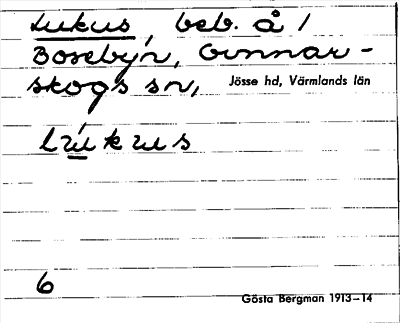 Lukus, beb. å /
Bosebyn, Gunnar-
skogs sn, Jösse hd, Värmlands län
Lúkus
6
Gösta Bergman 1913–14